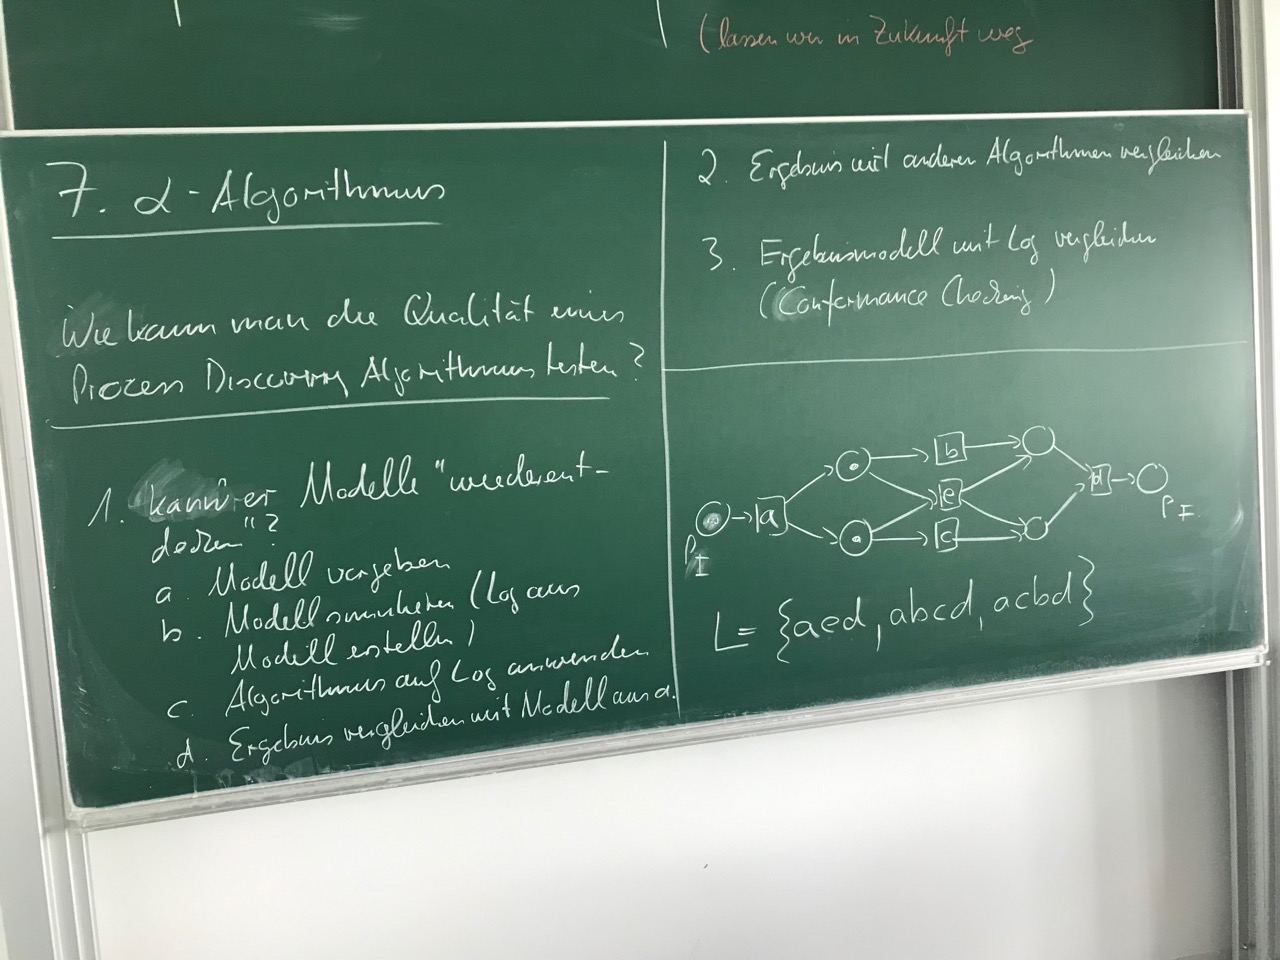 (lassen wir in Zukunft weg
7. α-Algorithmus
Wie kann man die Qualität eines
Prozess Discovery Algorithmus testen?
1. kann er Modelle "wiederent-
decken"?
a. Modell vorgeben
b. Modell simulieren (Log aus
Modell erstellen)
c. Algorithmus auf Log anwenden
d. Ergebnis vergleichen mit Modell aus a.
2. Ergebnis mit anderen Algorithmen vergleichen
3. Ergebnismodell mit Log vergleichen
(Conformance Checking)
b
a
e
d
c
P_I
P_F
L = {aed, abcd, acbd}